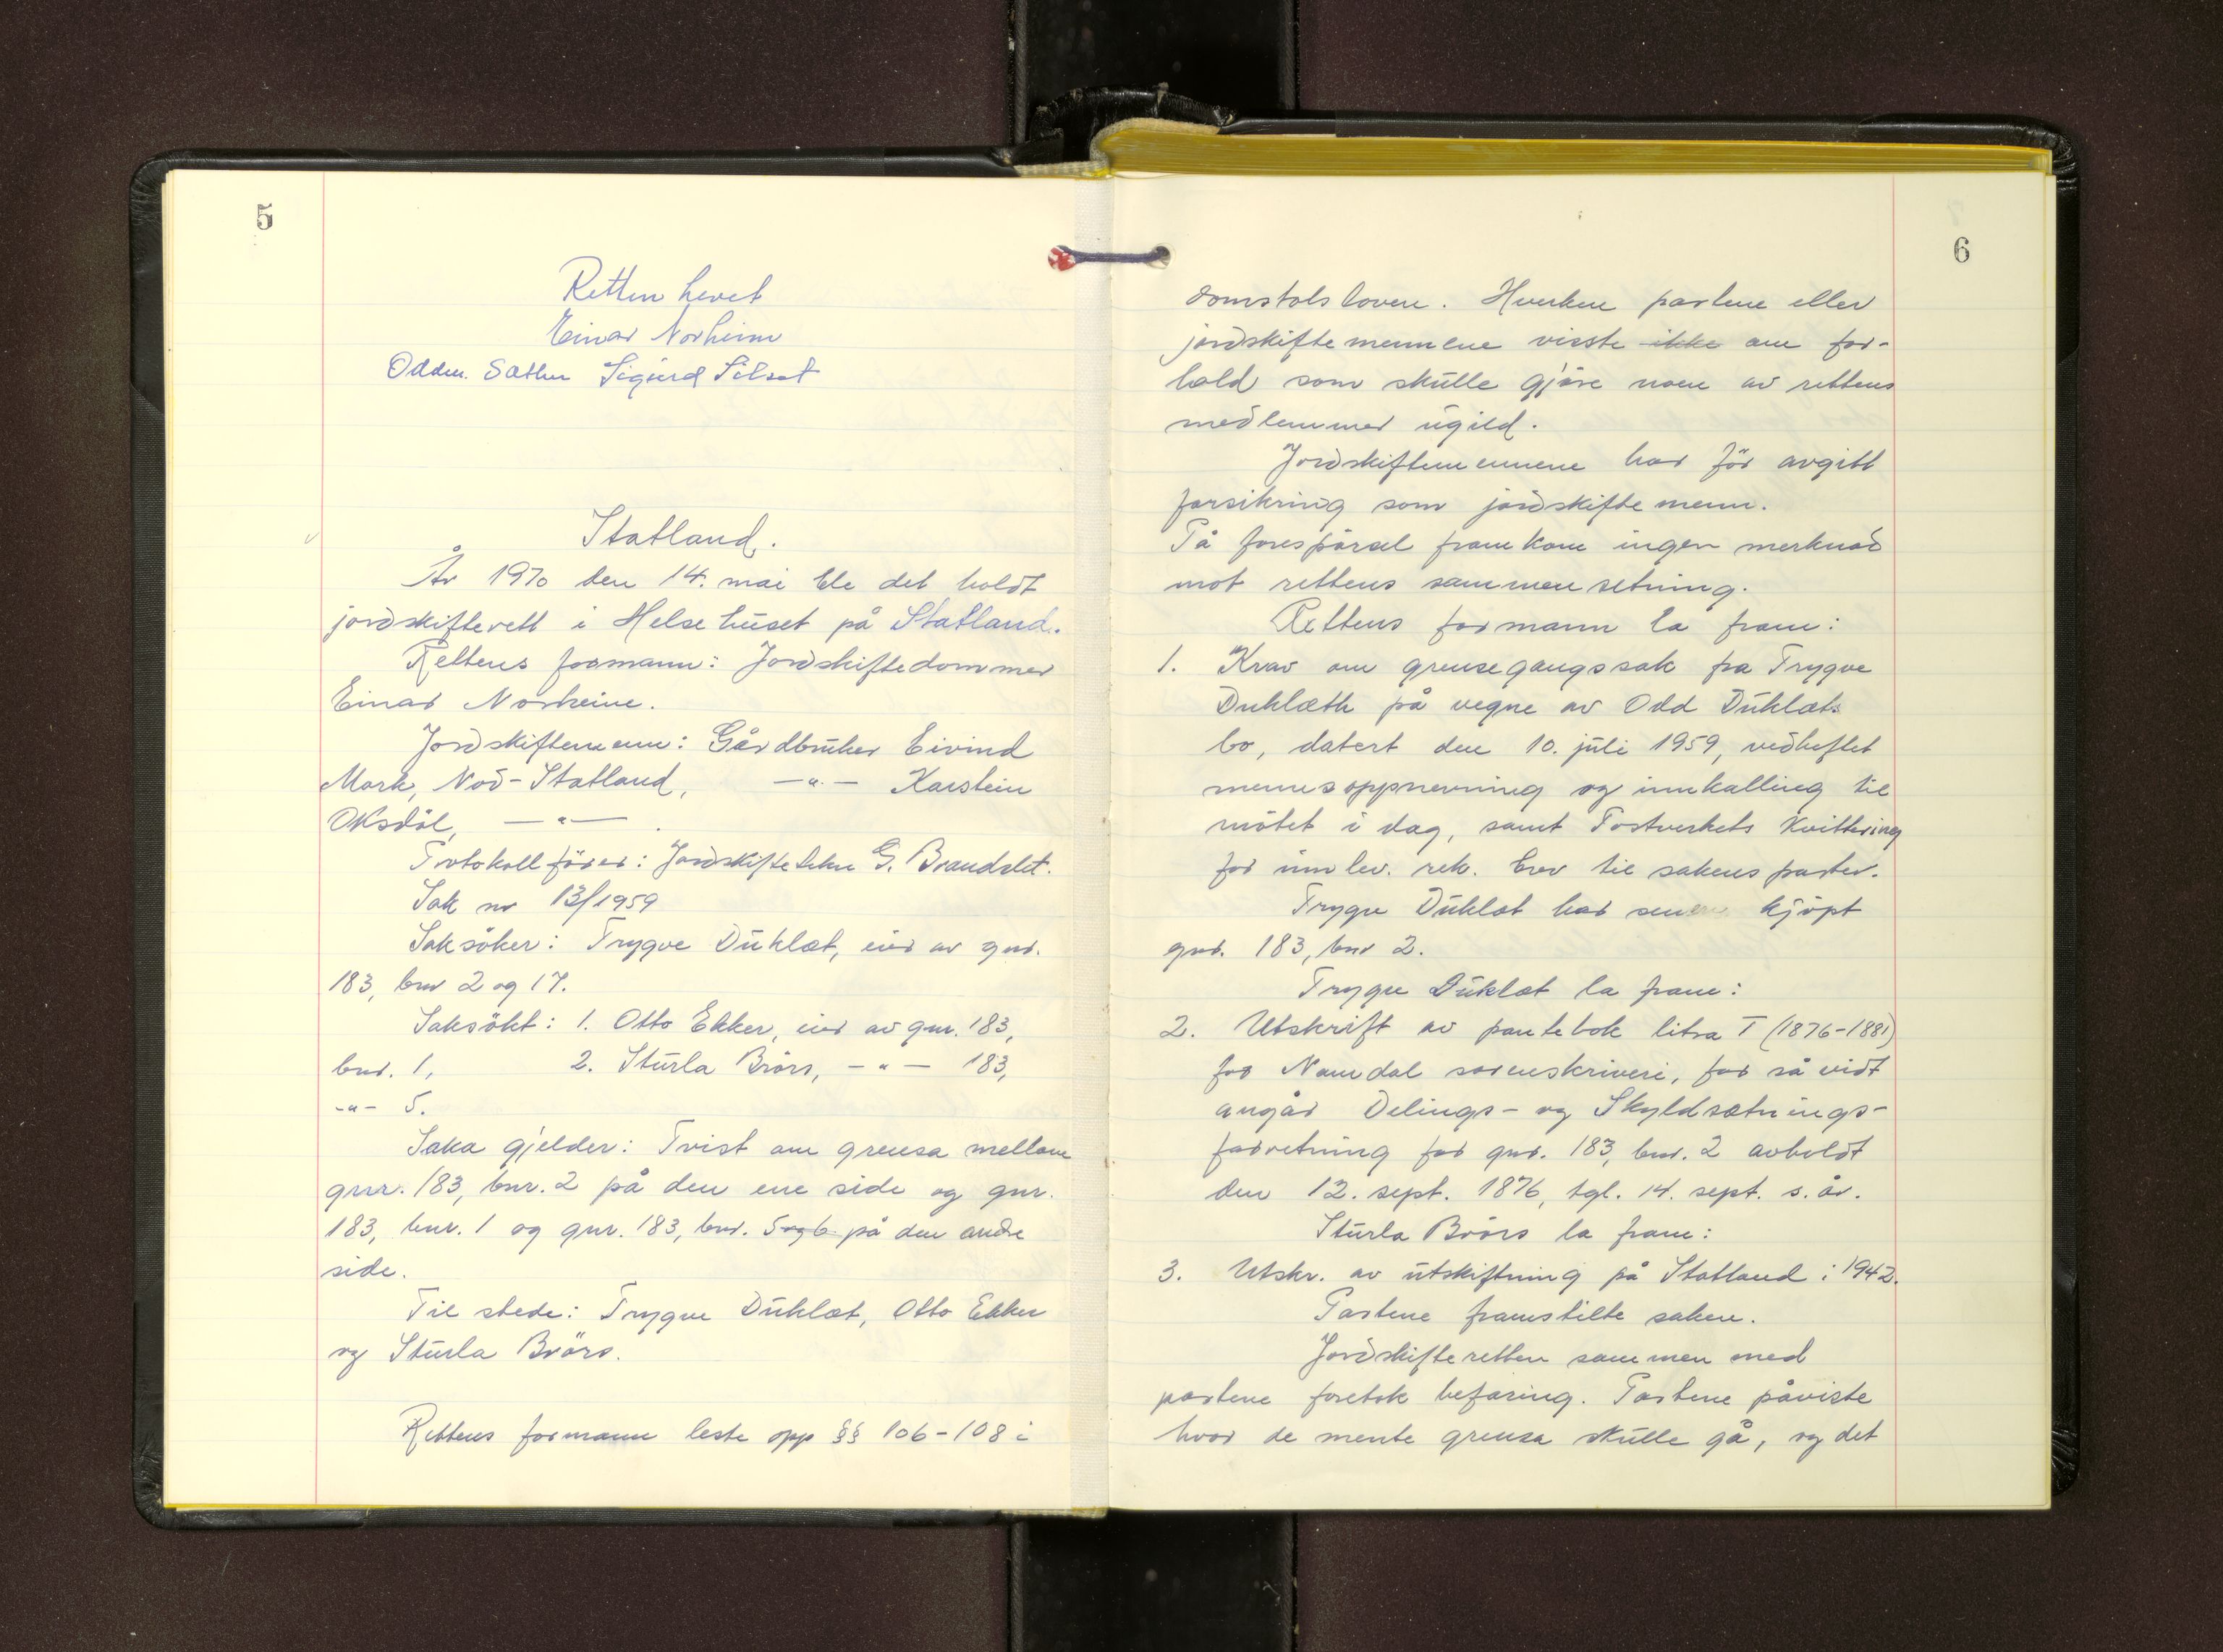 5
Retten hevet
Einar Norheim
Oddm. Sæther Sigurd Silset
Statland.
År 1970 den 14. mai ble det holdt
jordskifterett i Helsehuset på Statland.
Rettens formann: Jordskiftedommer
Einar Norheim.
Jordskiftemenn: Gårdbruker Eivind
Mork, Nod-Statland, -"- Karstein
Oksdöl, -"- .
Protokollförer: Jordskiftetekn G. Brandslet.
Sak nr 13/1959
Saksöker: Trygve Duklæt, eier av gnr.
183, bnr 2 og 17.
Saksökt: 1. Otto Ekker, eier av gnr. 183,
bnr. 1, 2. Sturla Brörs, -"- 183,
-"- 5.
Saka gjelder: Tvist om grensa mellom
gnr. 183, bnr. 2 på den ene side og gnr.
183, bnr. 1 og gnr. 183, bnr. 5 og 6 på den andre
side.
Til stede: Trygve Duklæt, Otto Ekker
og Sturla Brörs.
Rettens formann leste opp §§ 106-108 i
6
domstolsloven. Hverken partene eller
jordskiftemennene visste ikke om for-
hold som skulle gjöre noen av rettens
medlemmer ugild.
Jordskiftemennene har för avgitt
forsikring som jordskiftemenn.
På forespörsel framkom ingen merknad
mot rettens sammensetning.
Rettens formann la fram:
1. Krav om grensegangssak fra Trygve
Duklæth på vegne av Odd Duklæts
bo, datert den 10. juli 1959, vedheftet
mennsoppnevning og innkalling til
mötet i dag, samt Postverkets kvittering
for innlev. rek. brev til sakens parter.
Trygve Duklæt har senere kjöpt
gnr. 183, bnr 2.
Trygve Duklæt la fram:
2. Utskrift av pantebok litra T (1876-1881)
for Namdal sorenskriveri, for så vidt
angår Delings- og Skyldsætnings-
forretning for gnr. 183, bnr. 2 avholdt
den 12. sept. 1876, tgl. 14. sept. s. år.
Sturla Brörs la fram:
3. Utskr. av utskiftning på Statland i 1942.
Partene framstilte saken.
Jordskifteretten sammen med
partene foretok befaring. Partene påviste
hvor de mente grensa skulle gå, og det